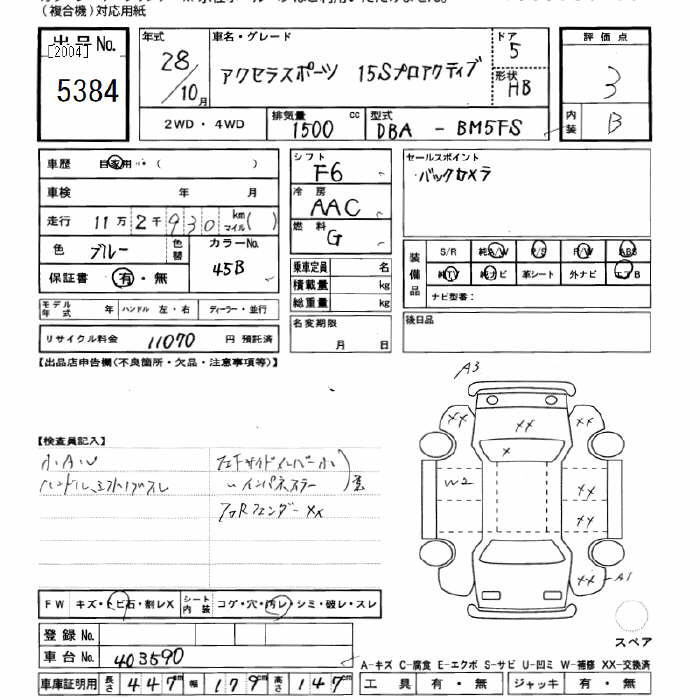 (複合機)対応用紙
出品No.
[2004]
5384
年式 28/10月
車名・グレード
アクセラスポーツ 15Sプロアクティブ
ドア 5
形状 HB
評価点 3
内装 B
2WD・4WD
排気量 1500 cc
型式 DBA - BM5FS
車歴 自家用 ( )
車検 年 月
走行 11万2千930 km マイル( )
色 ブルー 色替
カラーNo. 45B
保証書 有・無
モデル年式 年 ハンドル 左・右 ディーラー・並行
リサイクル料金 11070 円 預託済
シフト F6
冷房 AAC
燃料 G
乗車定員 名
積載量 kg
総重量 kg
名変期限 月 日
セールスポイント
・バックカメラ
装備品 S/R 純A/W P/S P/W ABS
純TV 純ナビ 革シート 外ナビ エアB
ナビ型番:
後日品
【出品店申告欄(不良箇所・欠品・注意事項等)】
【検査員記入】
小A・W
インパネ
フェンダーXX
A3
XX
XX
XX
X
W2
XX
XX
XX-A1
スペア
FW キズ・トビ石・割レX シート内装 コゲ・穴・汚レ・シミ・破レ・スレ
登録No.
車台No. 403590
車庫証明用 長さ 447cm 幅 179cm 高さ 147cm
A-キズ C-腐食 E-エクボ S-サビ U-凹ミ W-補修 XX-交換済
工具 有・無 ジャッキ 有・無